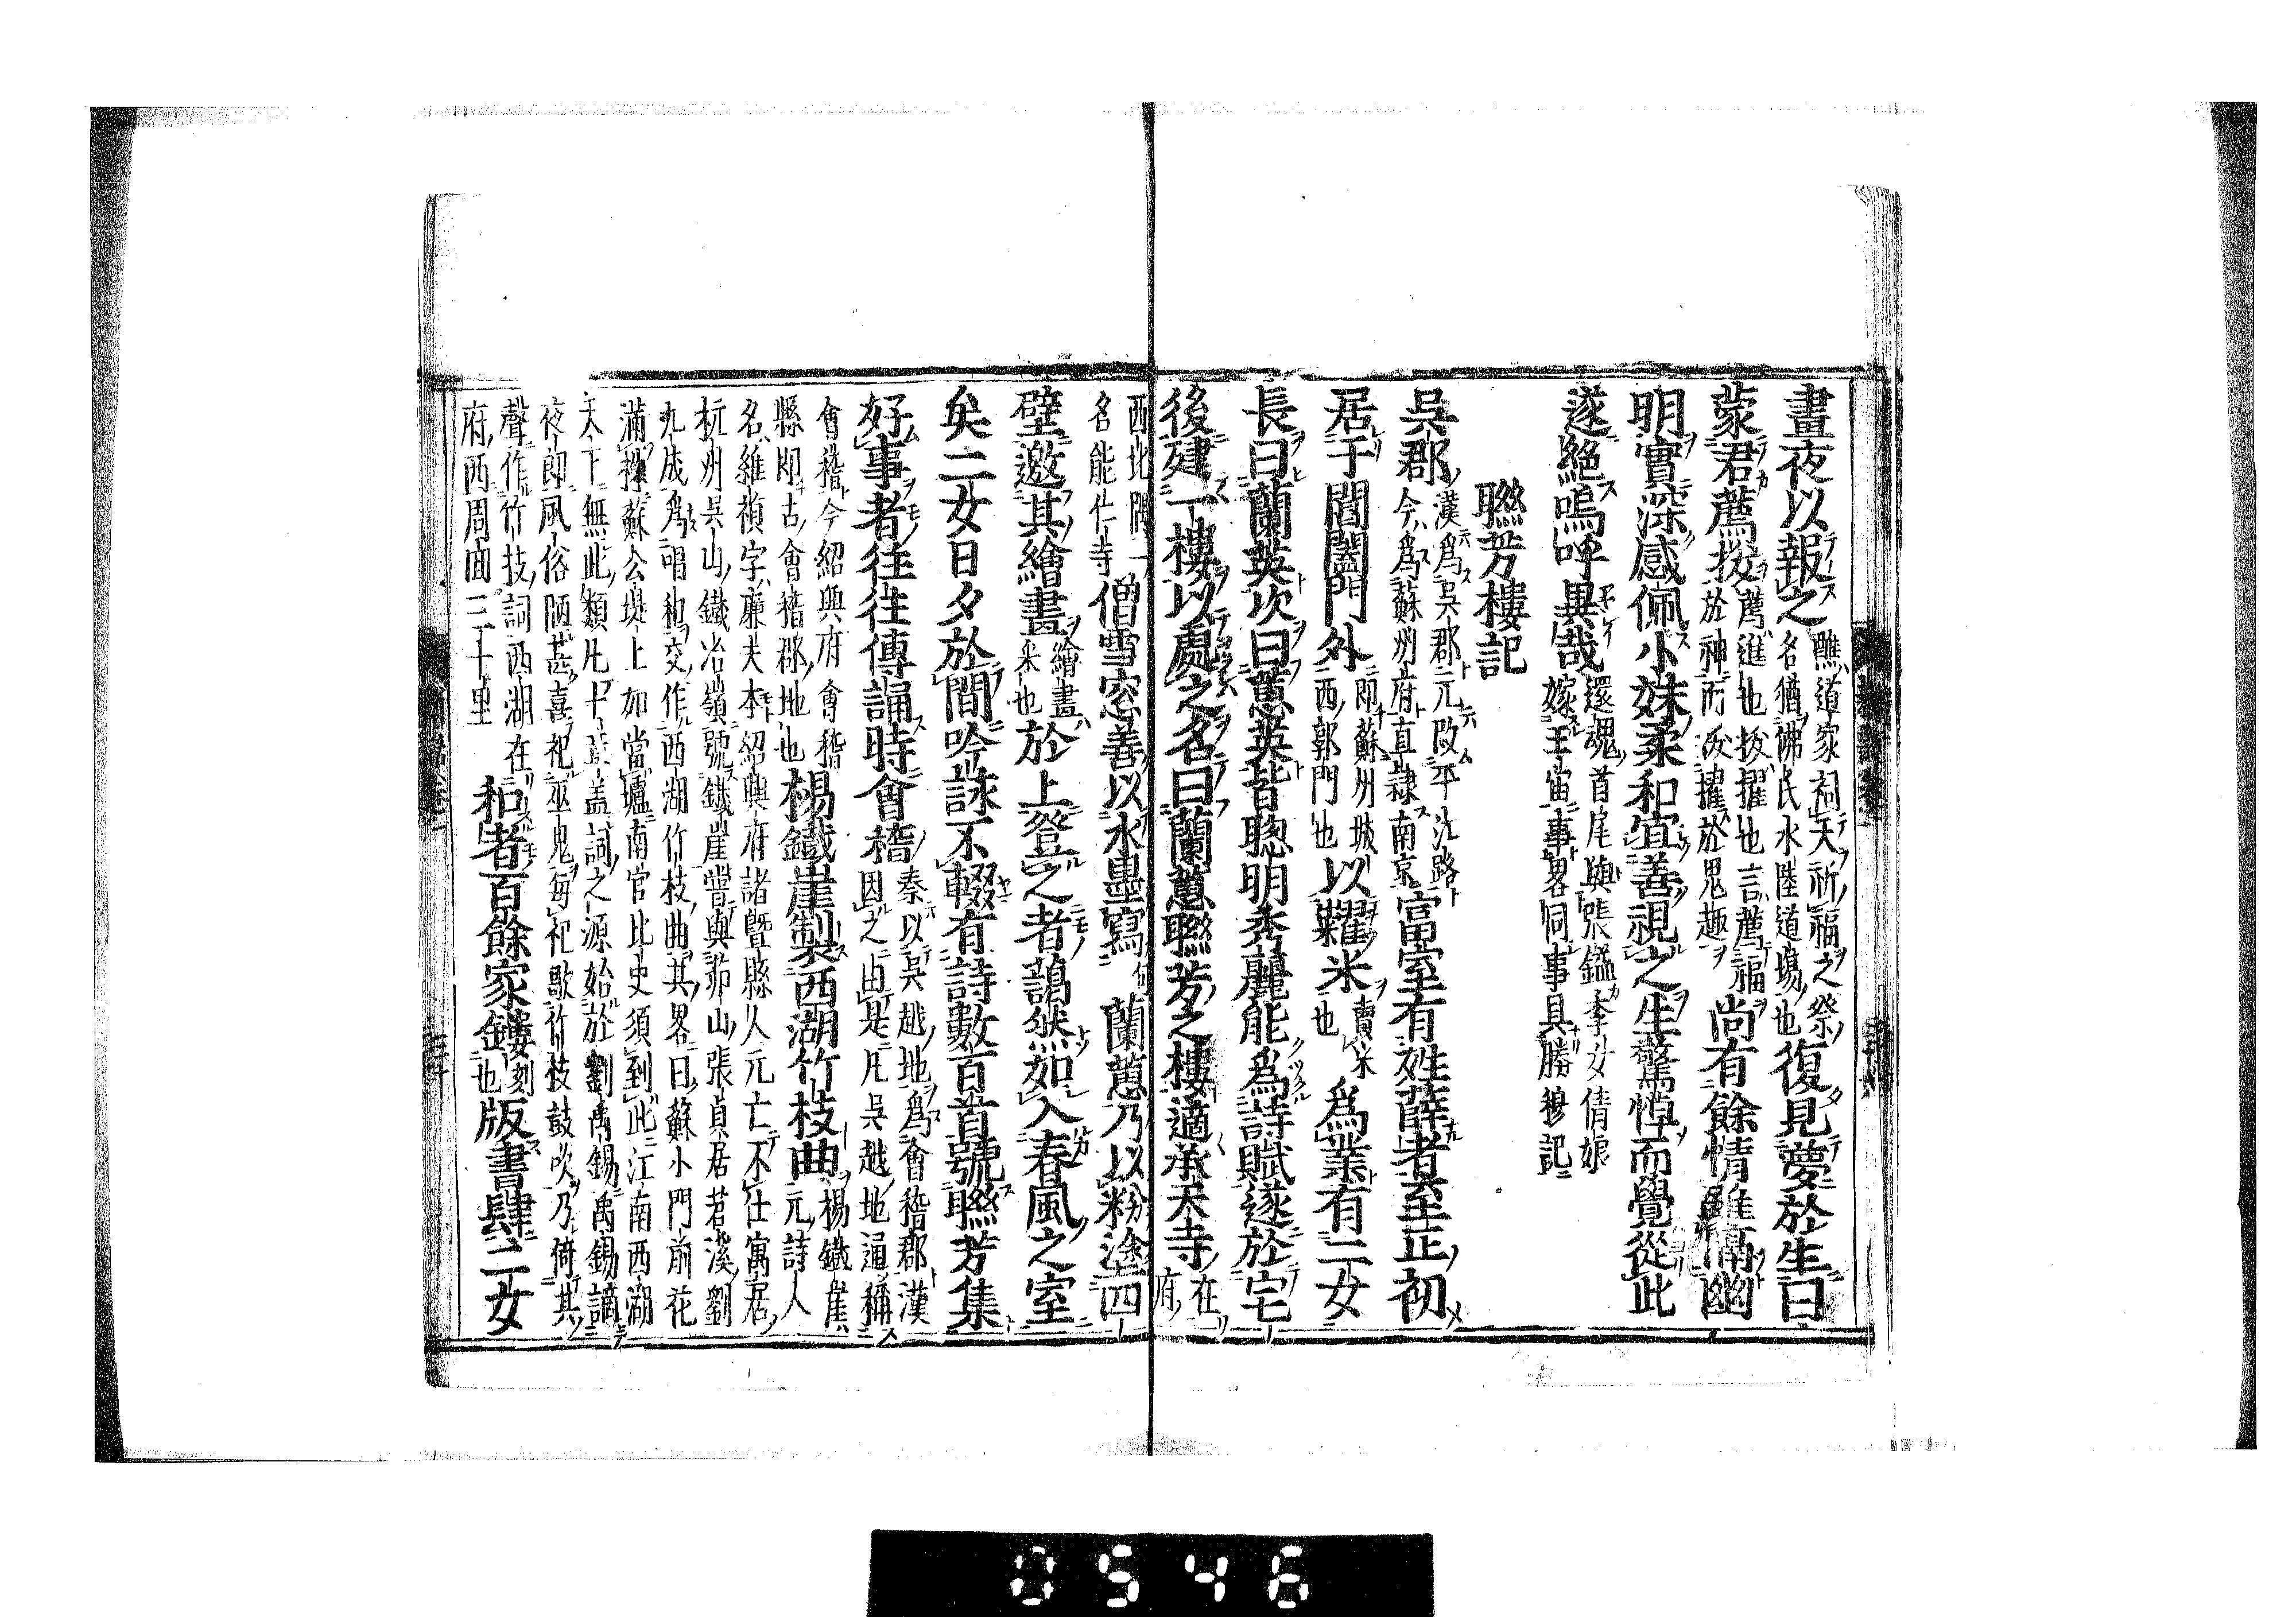 晝夜以報之醮道家祠天祈福之祭名猶佛氏水陸道場也復見夢於生曰
蒙君薦拔薦進也拔擢也言薦福於神而拔擢於鬼趣尚有餘情雖隔幽
明實深感佩小妹柔和宜善視之生驚悼而覺從此
遂絕嗚呼異哉還魂首尾與張鎰李女倩娘嫁王宙事畧同事具勝穆記
聯芳樓記
吳郡漢爲吳郡元改平江路今爲蘇州府直隸南京富室有姓薛者至正初
居于閶闔門外即蘇州城西郭門也以糶米賣米也爲業有二女
長曰蘭英次曰蕙英皆聰明秀麗能爲詩賦遂於宅
後建一樓以處之名曰蘭蕙聯芳之樓適承天寺在府
西北隅一名能仁寺僧雪窓善以水墨寫蘭蕙乃以粉塗四
壁邀其繪畫繪畫采也於上登之者藹然如入春風之室
矣二女日夕於間吟詠不輟有詩數百首號聯芳集
好事者往往傳誦時會稽秦以吳越地爲會稽郡漢因之由是凡吳越地通稱
會稽今紹興府會稽縣即古會稽郡地也楊鐵崖製西湖竹枝曲楊鐵崖元詩人
名維禎字廉夫本紹興府諸暨縣人元亡不仕寓居
杭州吳山鐵冶嶺號鐵崖嘗與茆山張貞居苕溪劉
九成爲唱和交作西湖竹枝曲其畧曰蘇小門前花
滿株蘇公堤上如當壚南官北史須到此江南西湖
天下無此類凡十首盖詞之源始於劉禹錫禹錫謫
夜郎風俗陋甚喜祀巫鬼每祀歌竹枝鼓吹乃倚其
聲作竹枝詞西湖在府西周面三十里和者百餘家鏤刻也版書肆二女
0546